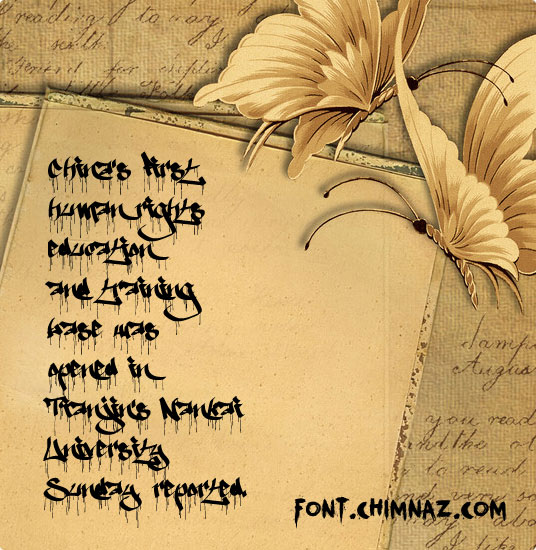 reading to
China's first
human rights
education
and training
base was
opened in
Tianjin's Nankai
University
Sunday reported.
Augus
you read
to read
I like
FONT.CHIMNAZ.COM